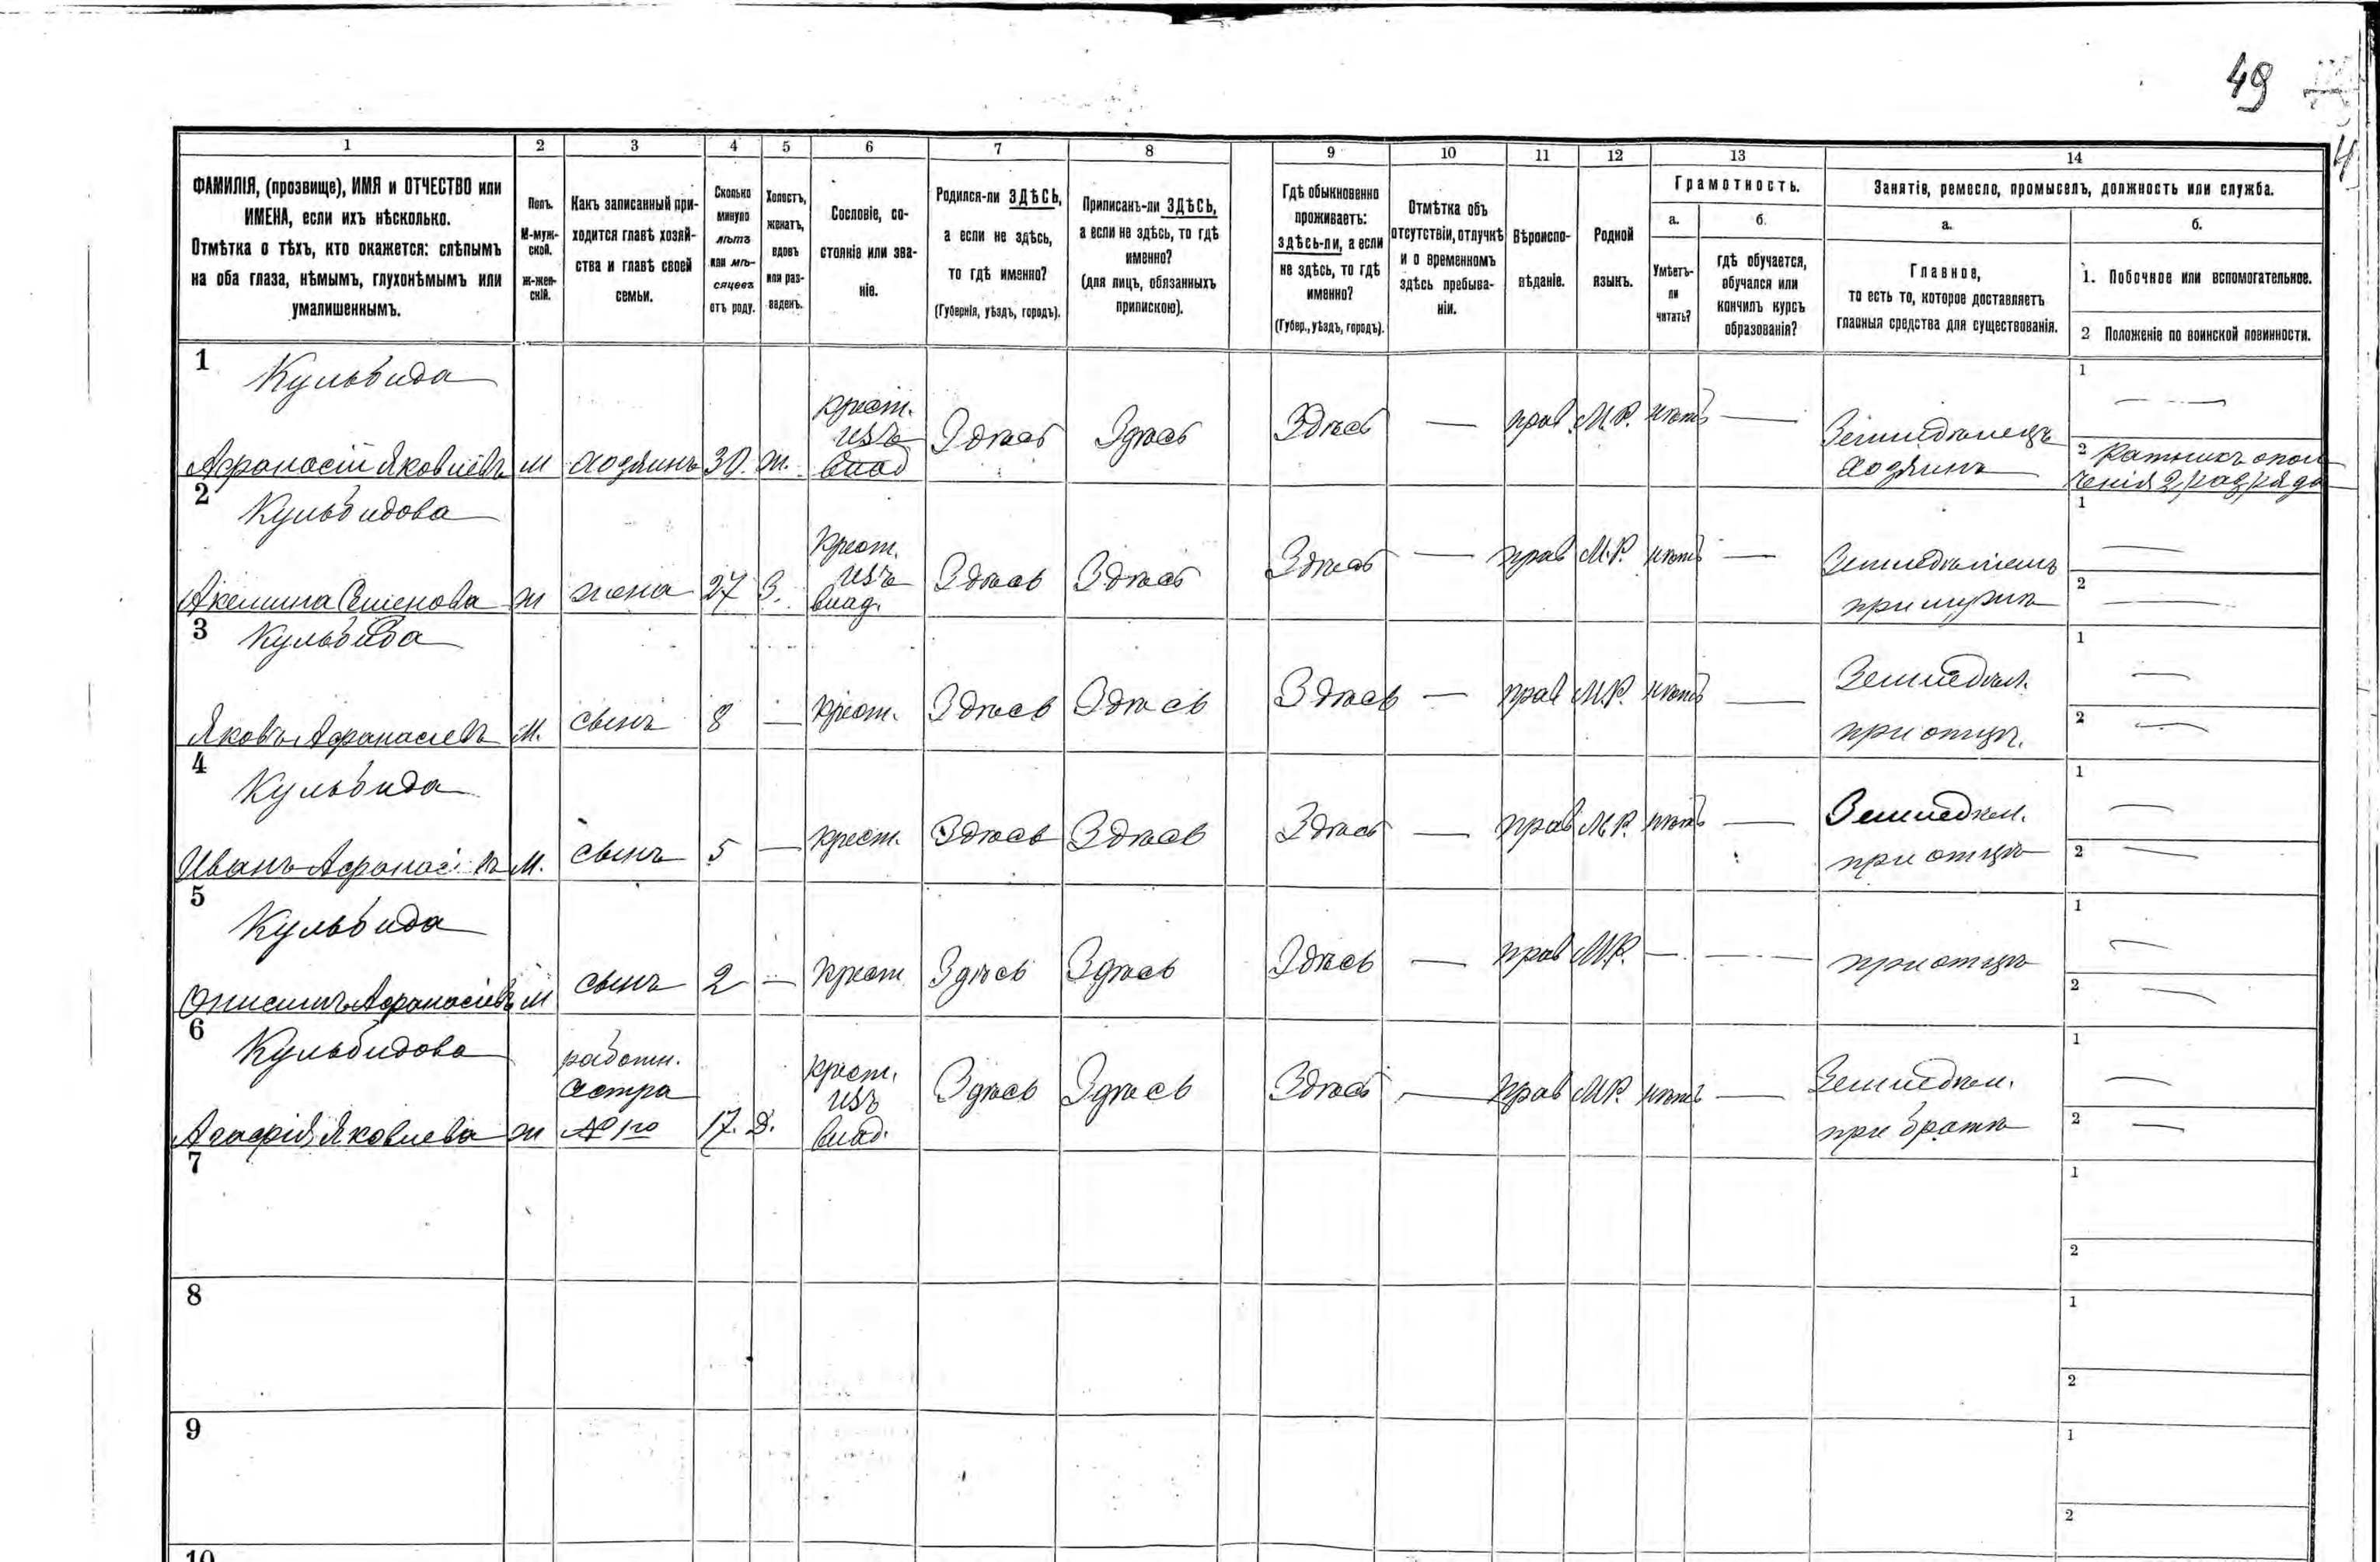 49
1
2
3
4
5
6
7
8
9
10
11
12
13
14
ФАМИЛІЯ, (прозвище), ИМЯ и ОТЧЕСТВО или
ИМЕНА, если ихъ нѣсколько.
Отмѣтка о тѣхъ, кто окажется: слѣпымъ
на оба глаза, нѣмымъ, глухонѣмымъ или
умалишеннымъ.
Полъ.
М-муж-
ской.
Ж-жен-
скій.
Какъ записанный при-
ходится главѣ хозяй-
ства и главѣ своей
семьи.
Сколько
минуло
лѣтъ
или мѣ-
сяцевъ
отъ роду.
Холостъ,
женатъ,
вдовъ
или раз-
веденъ.
Сословіе, со-
стояніе или зва-
ніе.
Родился-ли ЗДѢСЬ,
а если не здѣсь,
то гдѣ именно?
(Губернія, уѣздъ, городъ).
Приписанъ-ли ЗДѢСЬ,
а если не здѣсь, то гдѣ
именно?
(для лицъ, обязанныхъ
припискою).
Гдѣ обыкновенно
проживаетъ:
здѣсь-ли, а если
не здѣсь, то гдѣ
именно?
(Губер., уѣздъ, городъ).
Отмѣтка объ
отсутствіи, отлучкѣ
и о временномъ
здѣсь пребыва-
ніи.
Вѣроиспо-
вѣданіе.
Родной
языкъ.
Грамотность.
а.
Умѣетъ-
ли
читать?
б.
гдѣ обучается,
обучался или
кончилъ курсъ
образованія?
Занятіе, ремесло, промыселъ, должность или служба.
а.
Главное,
то есть то, которое доставляетъ
главныя средства для существованія.
б.
1. Побочное или вспомогательное.
2 Положеніе по воинской повинности.
1
Кульбида
Афанасій Яковлевъ
м
хозяинъ
30.
ж.
крест.
изъ
влад
Здѣсь
Здѣсь
Здѣсь
—
прав.
М.Р.
нѣтъ
—
Земледѣлецъ
хозяинъ
1
—
2 Ратникъ опол
ченія 2 разряда
2
Кульбидова
Акилина Семенова
ж
жена
27
З.
крест.
изъ
влад.
Здѣсь
Здѣсь
Здѣсь
—
прав
М.Р.
нѣтъ
—
при мужѣ
1
—
2
—
3
Кульбида
Яковъ Афанасіевъ
М.
сынъ
8
—
крест.
Здѣсь
Здѣсь
Здѣсь
—
прав
М.Р.
нѣтъ
—
Земледѣл.
при отцѣ.
1
—
2
—
4
Кульбида
Иванъ
М.
сынъ
5
—
крест.
Здѣсь
Здѣсь
Здѣсь
—
прав
М.Р.
нѣтъ
—
Земледѣл.
при отцѣ
1
—
2
—
5
Кульбида
Онисимъ Афанасіевъ
м
сынъ
2
—
крест
Здѣсь
Здѣсь
Здѣсь
—
прав
М.Р.
—
—
при отцѣ
1
—
2
—
6
Кульбидова
Агафія Яковлева
ж
работн.
сестра
№ 1го
17.
Д.
крест.
изъ
влад.
Здѣсь
Здѣсь
Здѣсь
—
прав
М.Р.
нѣтъ
—
Земледѣл.
при братѣ
1
—
2
—
7
1
2
8
1
2
9
1
2
10